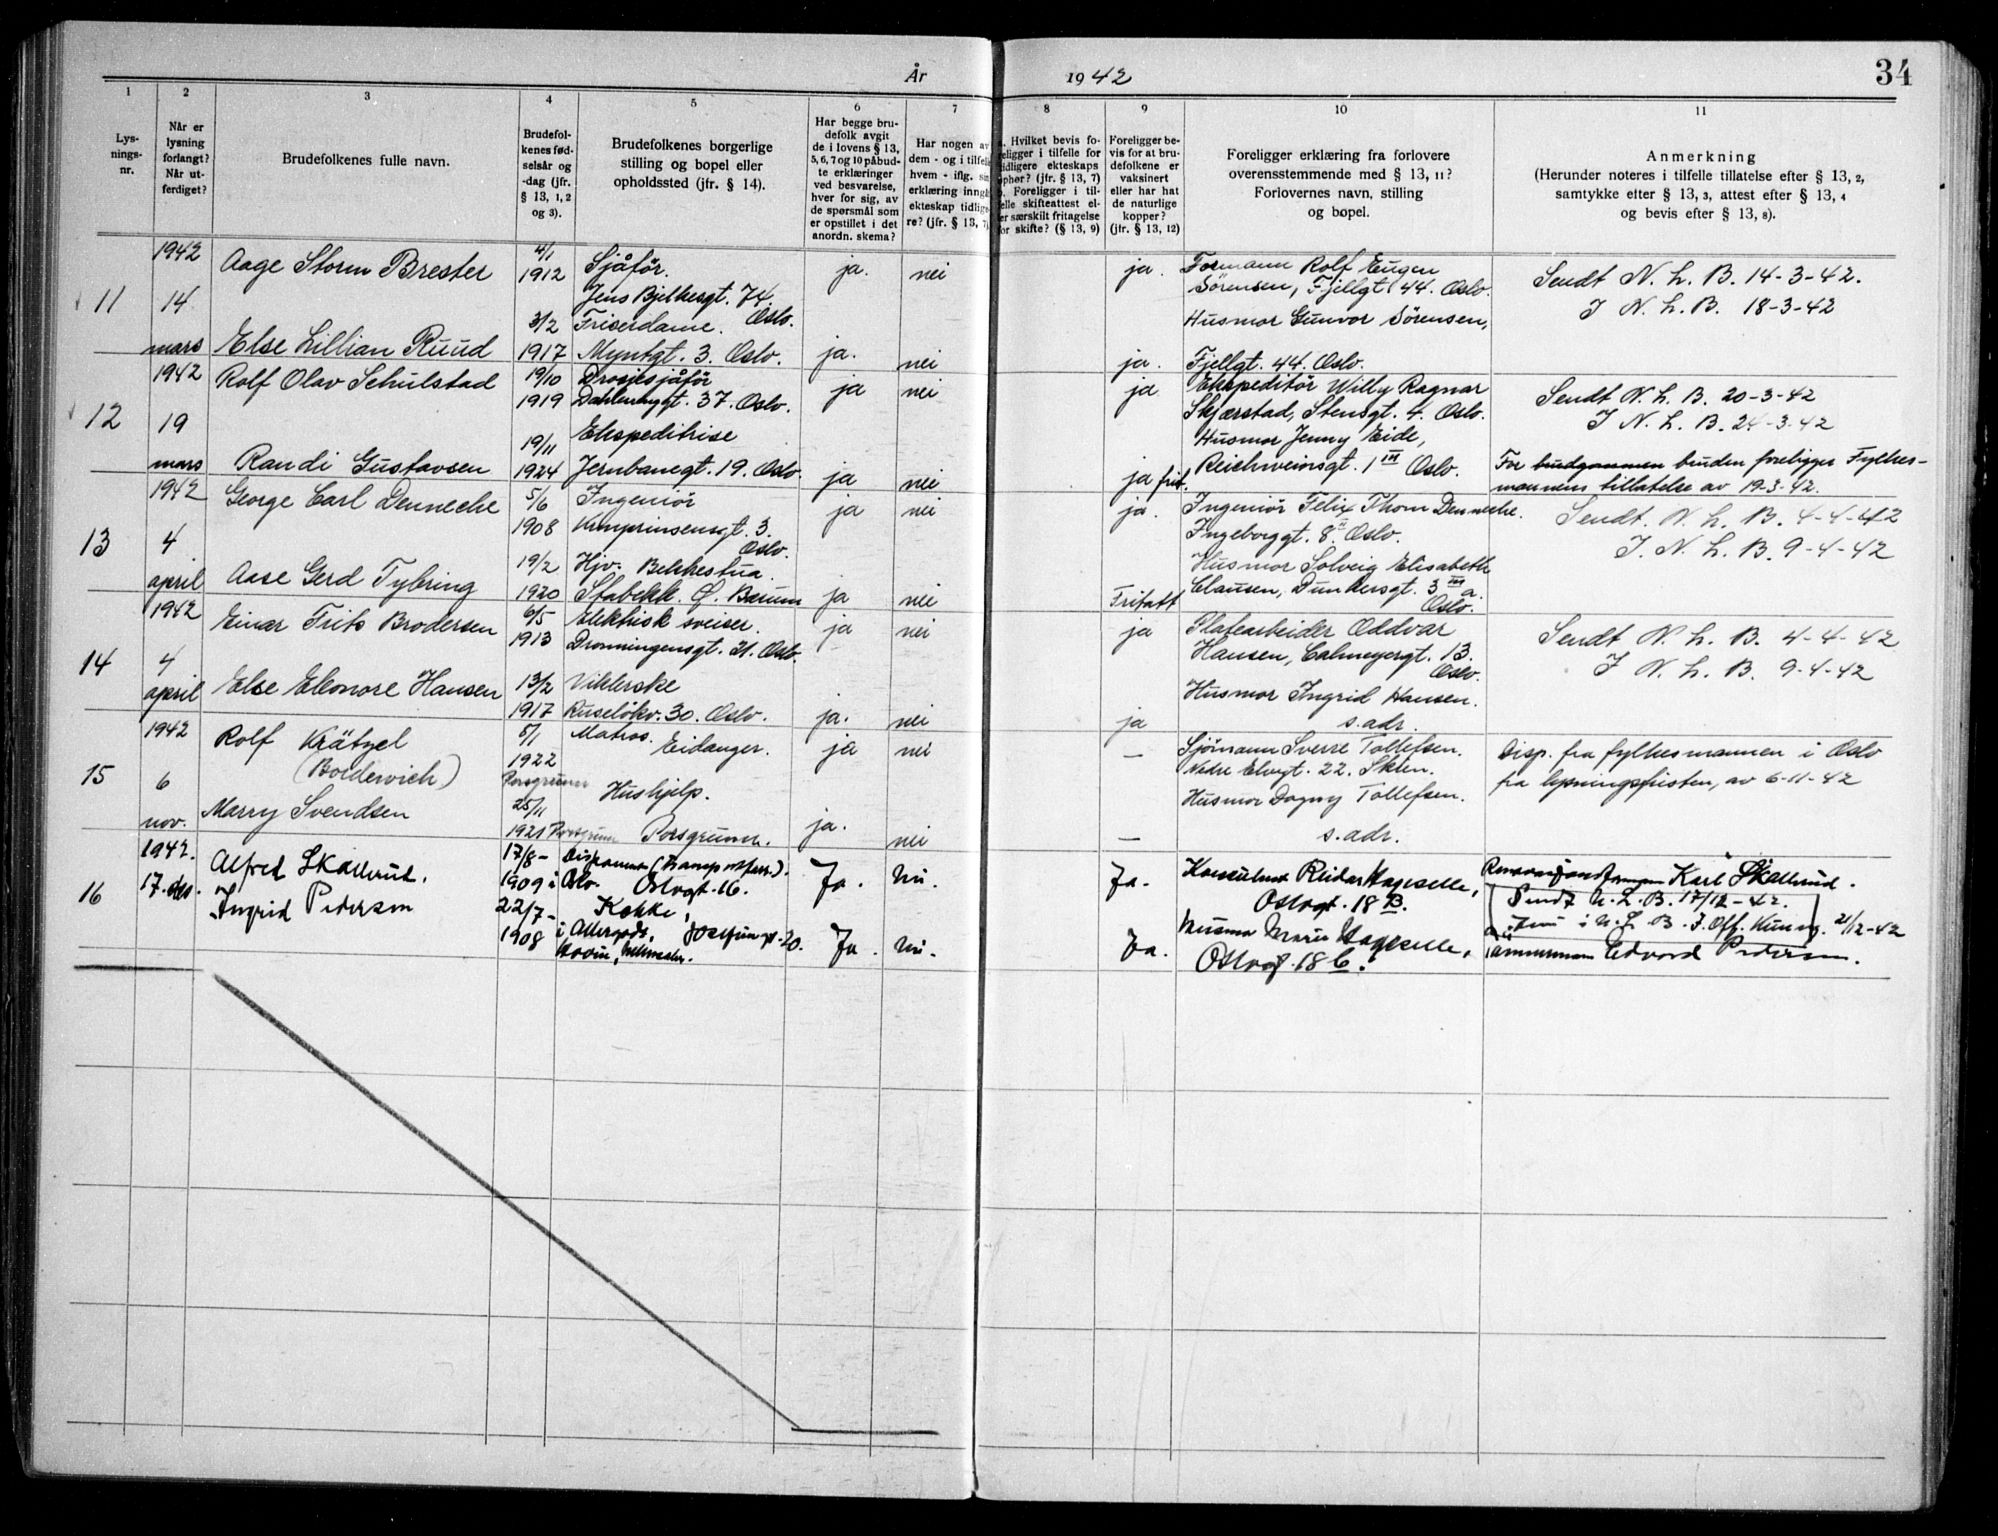 År 1942
34
1
2
3
4
5
6
7
8
9
10
11
Lys-
nings-
nr.
Når er
lysning
forlangt?
Når ut-
ferdiget?
Brudefolkenes fulle navn.
Brudefol-
kenes fød-
selsår og
-dag (jfr.
§ 13, 1, 2
og 3).
Brudefolkenes borgerlige
stilling og bopel eller
opholdssted (jfr. § 14).
Har begge bru-
defolk avgit
de i lovens § 13,
5, 6, 7 og 10 påbud-
te erklæringer
ved besvarelse,
hver for sig, av
de spørsmål som
er opstillet i det
anordn. skema?
Har nogen av
dem - og i tilfelle
hvem - iflg. sin
erklæring inngåt
ekteskap tidlige-
re? (jfr. § 13, 7)
Hvilket bevis fo-
religger i tilfelle for
tidligere ekteskaps
ophør? (jfr. § 13, 7)
Foreligger i til-
felle skifteattest el-
ler særskilt fritagelse
for skifte? (§ 13, 9)
Foreligger be-
vis for at bru-
defolkene er
vaksinert
eller har hat
de naturlige
kopper?
(jfr. § 13, 12)
Foreligger erklæring fra forlovere
overensstemmende med § 13, 11?
Forlovernes navn, stilling
og bopel.
Anmerkning
(Herunder noteres i tilfelle tillatelse efter § 13, 2,
samtykke efter § 13, 3, attest efter § 13, 4
og bevis efter § 13, 8).
11
1942
14
mars
Aage Storm Brester
4/1
1912
Sjåfør.
Jens Bjelkesgt. 74.
Oslo.
ja.
nei
ja.
Formann Rolf Eugen
Sørensen, Fjellgt 44. Oslo.
Sendt N. L. B. 14-3-42.
I N. L. B. 18-3-42
Else Lillian Ruud
3/2
1917
Friserdame.
Myntgt. 3. Oslo.
ja.
nei
ja.
Husmor Gunvor Sørensen,
Fjellgt. 44. Oslo.
12
1942
19
mars
Rolf Olav Schulstad
19/10
1919
Drosjesjåfør
37. Oslo.
ja
nei
ja
Ekspeditør Willy Ragnar
Skjærstad, Stensgt. 4. Oslo.
Sendt N. L. B. 20-3-42
I N. L. B. 24-3-42
Randi Gustavsen
19/11
1924
Ekspeditrise
Jernbanegt. 19. Oslo.
ja
nei
ja frit.
Husmor Jenny Eide,
Reichweinsgt. 1 III Oslo.
For brudgommen bruden foreligger Fylkes-
mannens tillatelse av 19-3-42.
13
1942
4
april
George Carl Denneche
5/6
1908
Ingeniør
Kronprinsensgt. 3.
Oslo.
ja
nei
ja.
Ingeniør Felix Thom Denneche.
Ingeborggt. 8 II Oslo.
Sendt. N. L. B. 4-4-42
I. N. L. B. 9-4-42
Aase Gerd Tybring
19/2
1920
Hjv. Bekkestua.
Stabekk. Ø. Bærum
ja
nei
Fritatt
Husmor Solveig Elisabeth
Clausen, Dunkersgt. 3 III a.
Oslo.
14
1942
4
april
Einar Frits Brodersen
6/5
1913
Elektrisk sveiser.
Dronningensgt. 21. Oslo.
ja
nei
ja
Platearbeider Oddvar
Hansen, Calmeyergt. 13.
Oslo.
Sendt N. L. B. 4-4-42
I N. L. B. 9-4-42
Else Eleonore Hansen
13/2
1917
Viklerske
Ruseløkv. 30. Oslo.
ja.
nei
ja
Husmor Ingrid Hansen.
s. adr.
15
1942
6
nov.
Rolf Krätzel
(Borderwich)
1922
Porsgrunn
Matros.
Eidanger.
ja
nei
—
Sjømann Sverre Tollefsen.
Nedre Elvegt. 22. Skien.
Disp. fra fylkesmannen i Oslo
fra lysningsfristen, av 6-11-42
Marry Svendsen
25/11
1921
Porsgrunn
Hushjelp.
Porsgrunn.
ja.
nei
—
Husmor Dagny Tollefsen.
s. adr.
16
1942.
17. des.
Alfred Skallerud.
17/8-
1909 i Oslo.
Oslogt. 16.
Ja.
Nei.
Ja.
Konsulent Reidar Hageselle,
Oslogt. 18 B.
Karl Skallerud.
Sendt N. L. B. 17/12-42.
i N. L. B. 21/12-42
Ingrid Pedersen
22/7-
1908
Kokke,
Josefinesgt. 20.
Ja.
Nei.
Ja.
Husmor Marie Hageselle,
Oslogt. 18 B.
Tømmermann Edvard Pedersen.